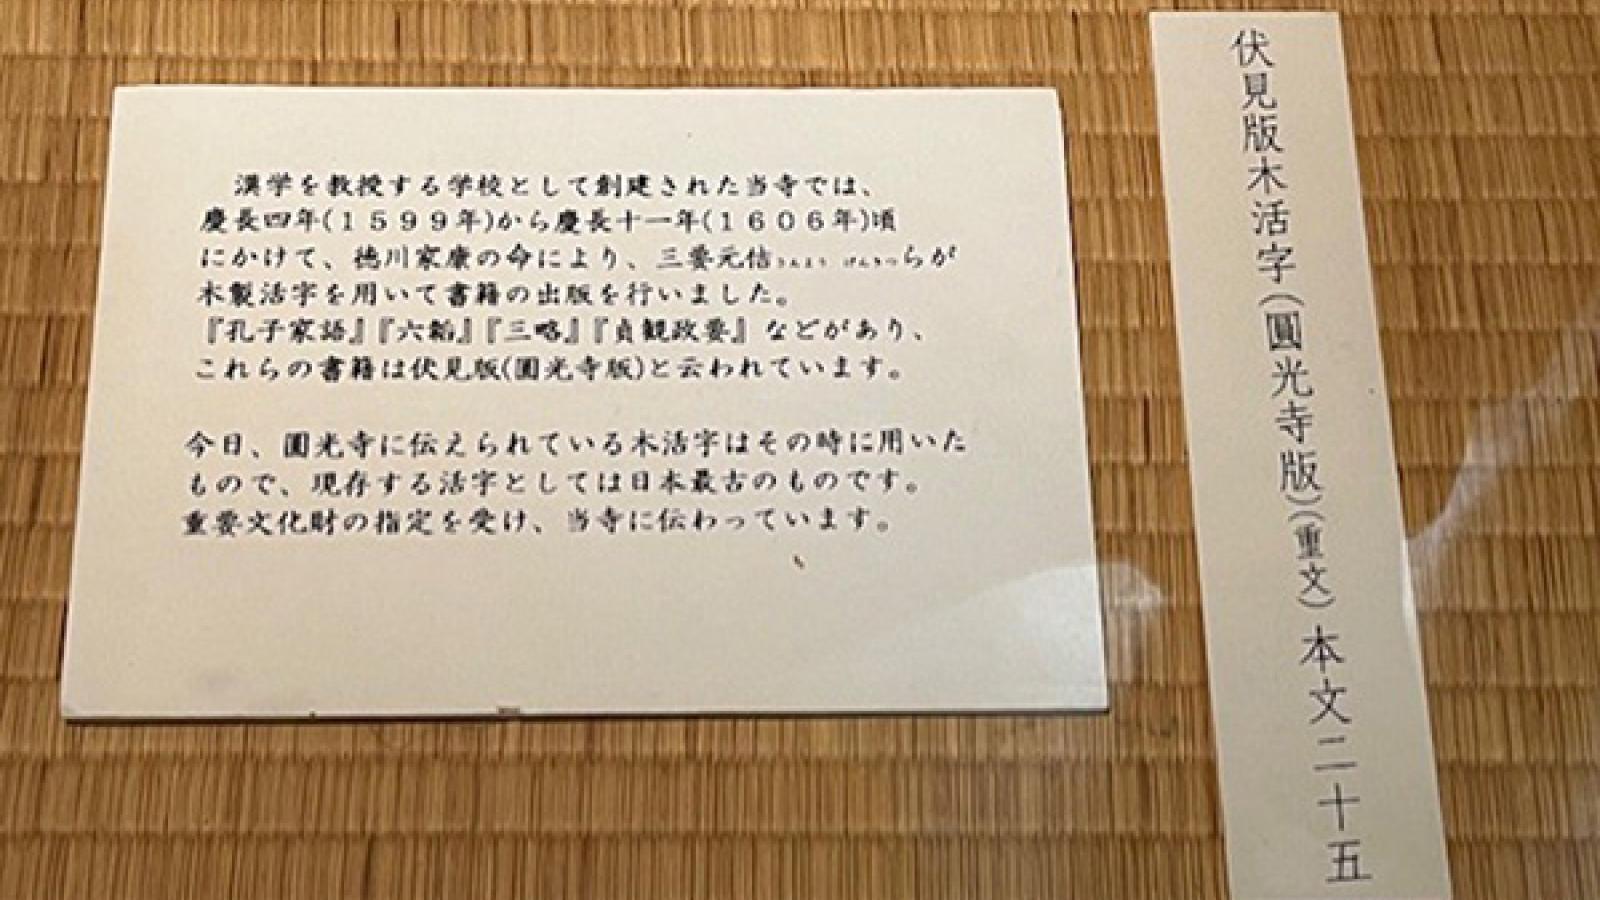 漢学を教授する学校として創建された当寺では、
慶長四年(１５９９年)から慶長十一年(１６０６年)頃
にかけて、徳川家康の命により、三要元佶さんよう げんきつらが
木製活字を用いて書籍の出版を行いました。
『孔子家語』『六韜』『三略』『貞観政要』などがあり、
これらの書籍は伏見版(圓光寺版)と云われています。
今日、圓光寺に伝えられている木活字はその時に用いた
もので、現存する活字としては日本最古のものです。
重要文化財の指定を受け、当寺に伝わっています。
伏見版木活字(圓光寺版)(重文) 本文二十五